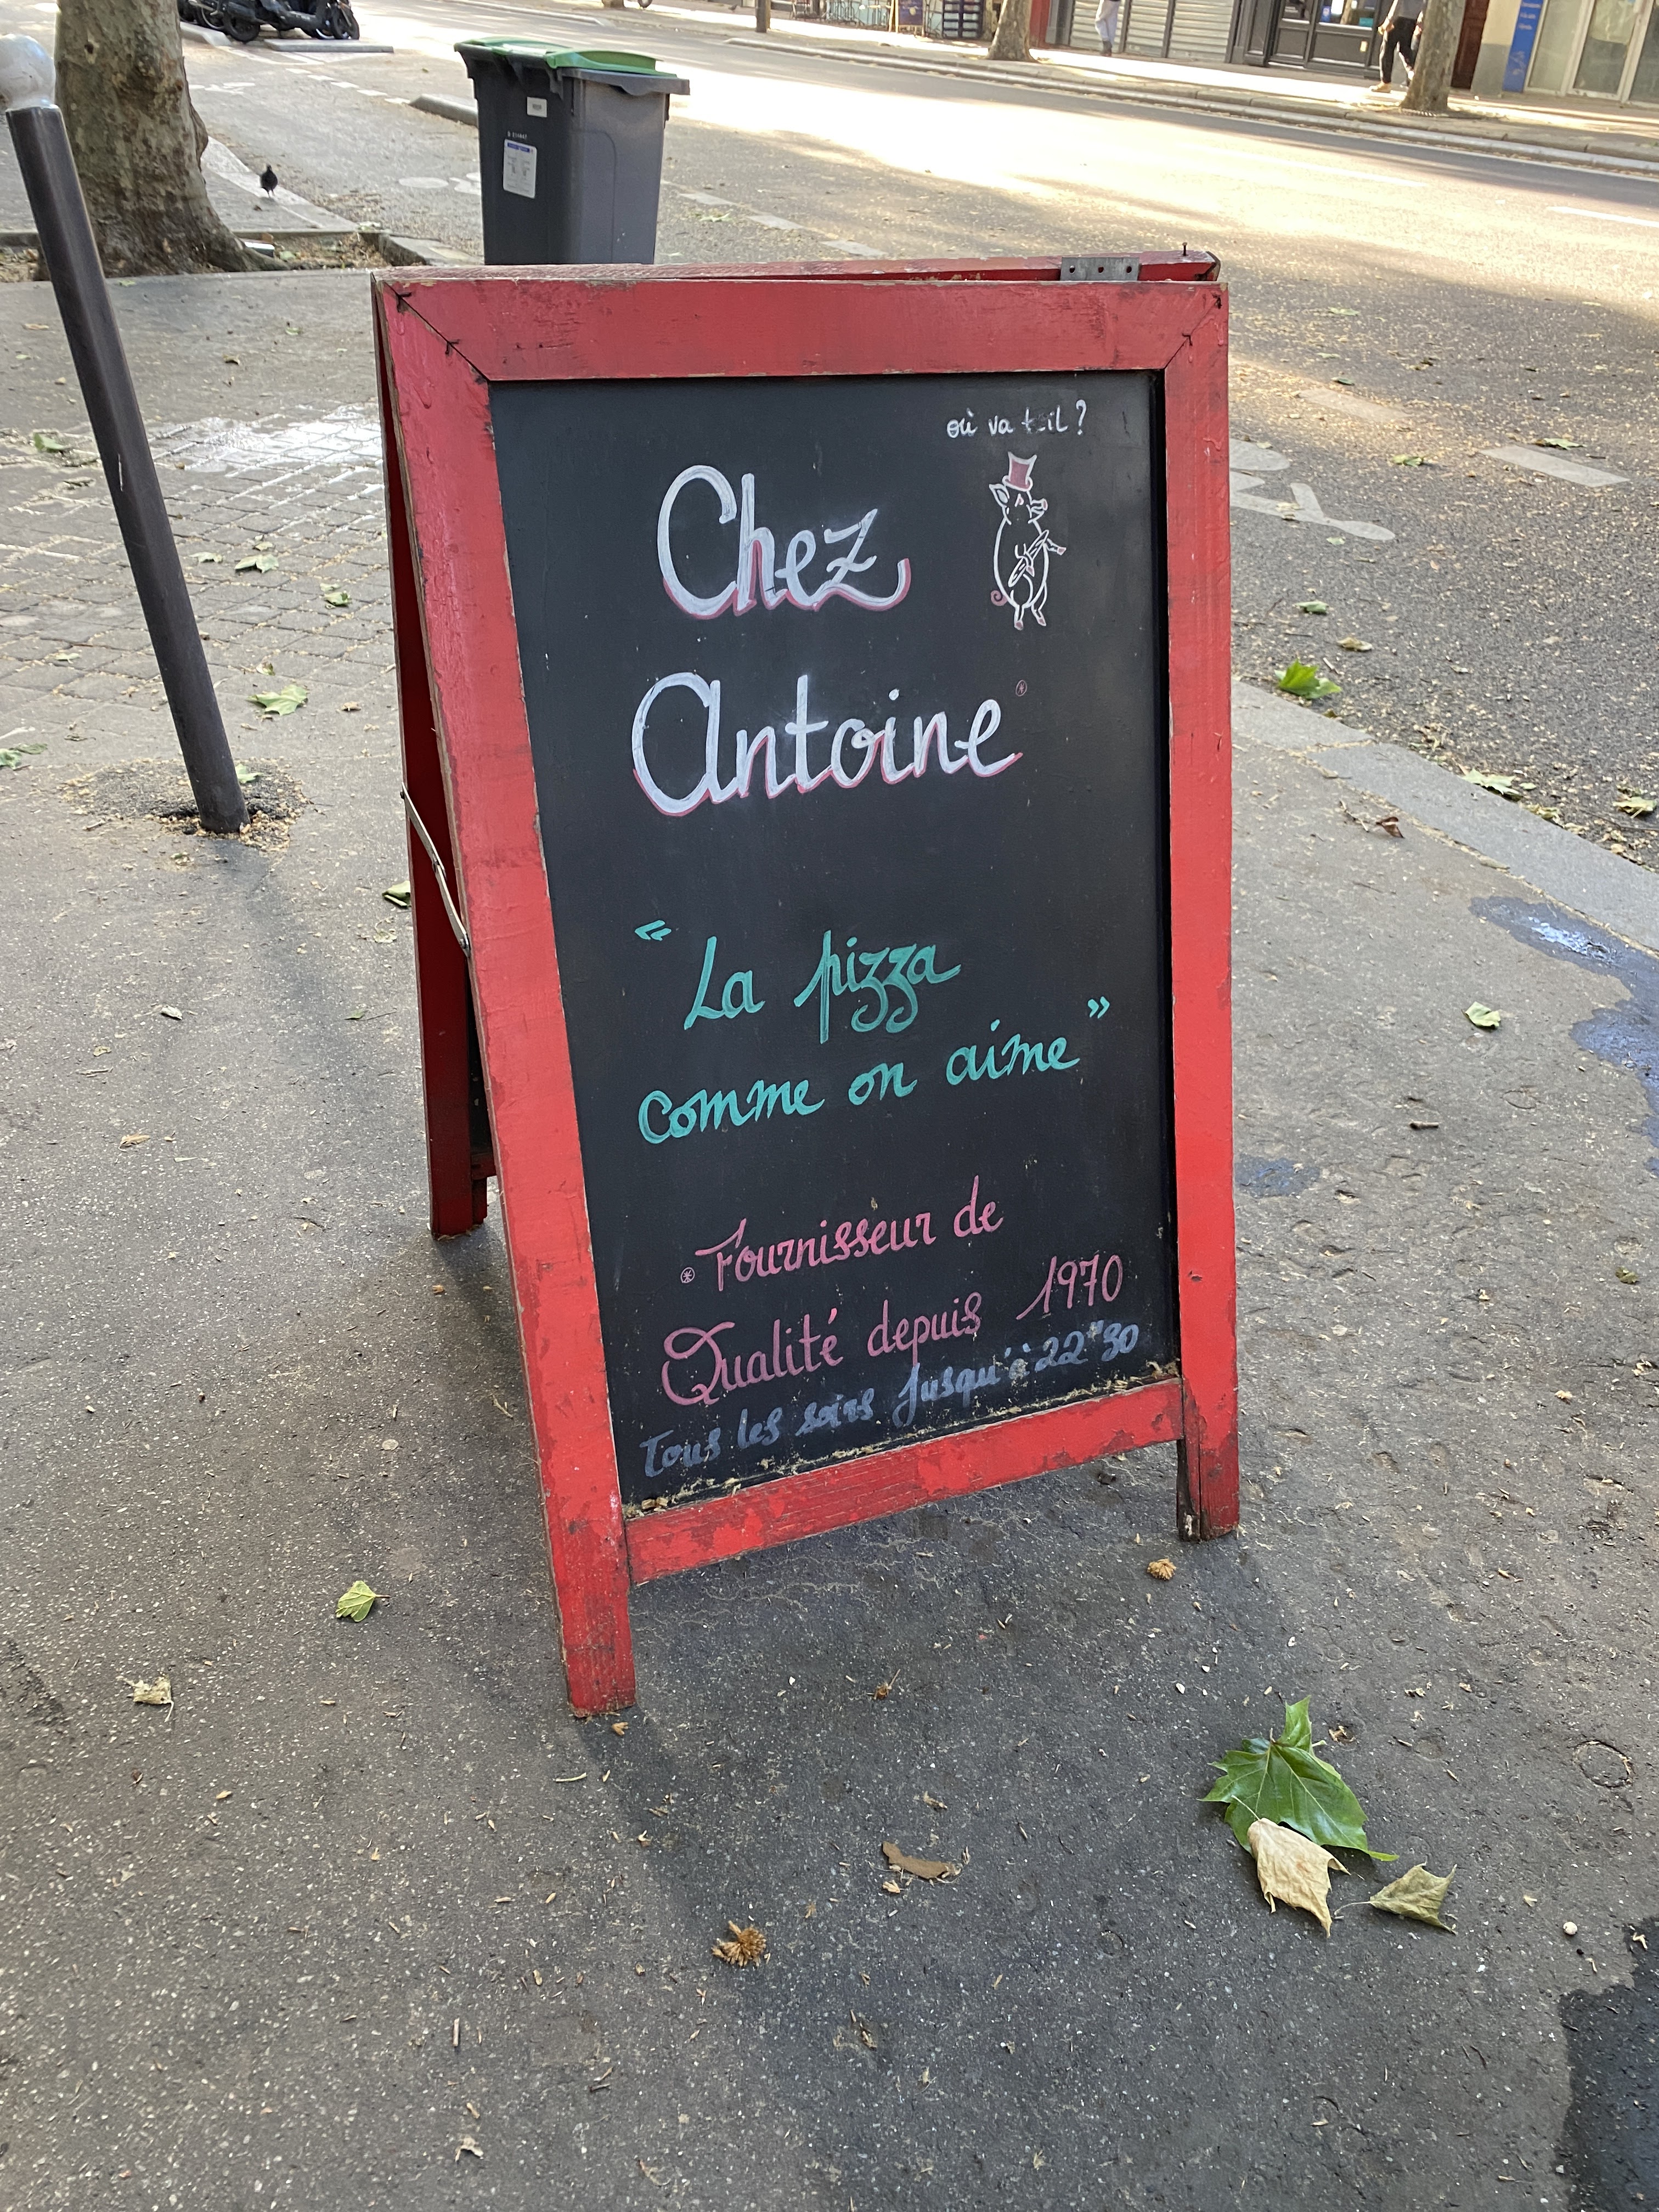 où va t-il ?
Chez
Antoine *
" La pizza
comme on aime "
* Fournisseur de
Qualité depuis 1970
Tous les soirs Jusqu'à 22"30